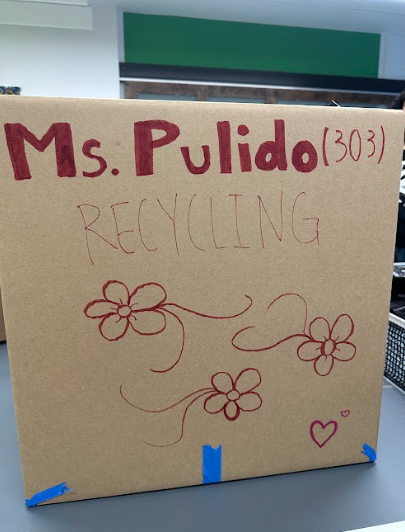 Ms. Pulido (303)
RECYCLING